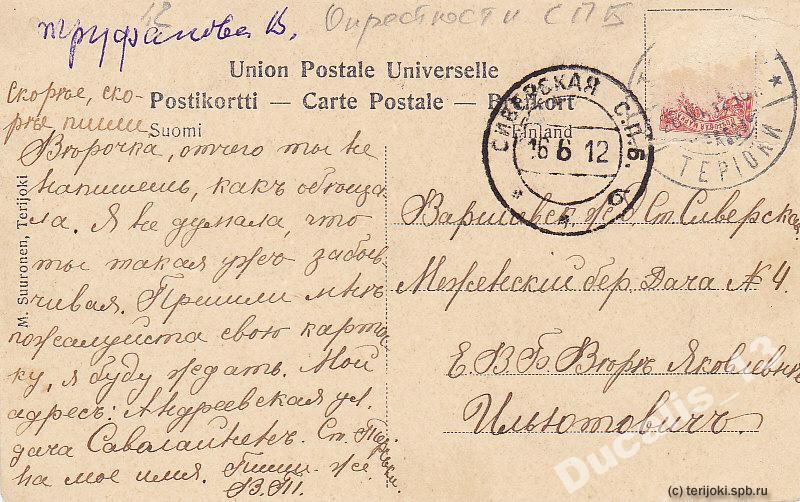 12
Окрестности СПБ
Труфанова В.
Union Postale Universelle
Postikortti — Carte Postale — Brefkort
Suomi
Finland
Скорѣе, ско-
рѣе пиши
Вѣрочка, отчего ты не
напишешь, какъ обѣща
ла. Я не думала, что
ты такая ужъ забыв
чивая. Пришли мнѣ
пожалуйста свою карточ
ку, я буду ждать. Мой
адресъ: Андреевская ул.
дача Саволайненъ. Ст.
на мое имя. Пиши-же.
В.Т.
M. Suuronen, Terijoki
СИВЕРСКАЯ С.П.Б.
16 6 12
б
ТЕРІОКИ
Варшавск ж. д. Ст. Сиверская
Меженскій бер. Дача № 4.
Е. В. Б Вѣрѣ Яковлевнѣ
Ильютовичъ.
Ducatis_13
(c) terijoki.spb.ru